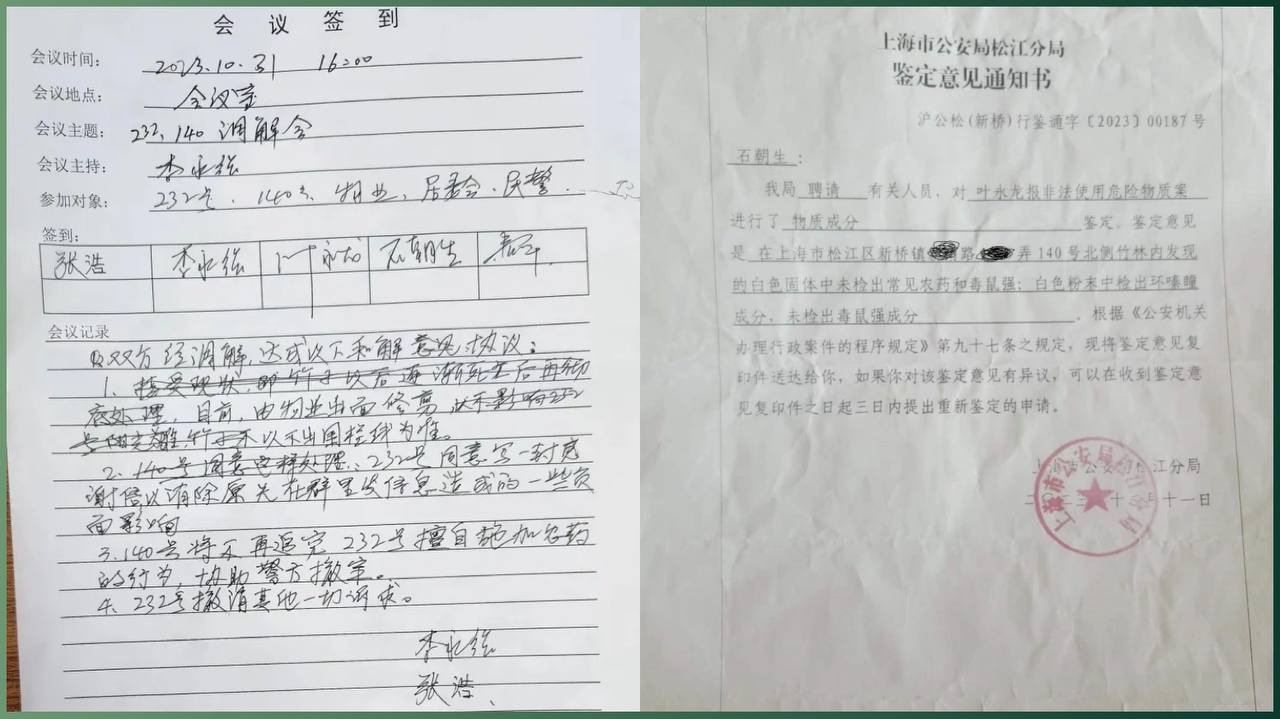 会议签到
会议时间： 2023.10.31 16:00
会议地点： 会议室
会议主题： 232、140 调解会
会议主持： 李永强
参加对象： 232号、140号、物业、居委会、民警
签到：
张浩 李永强 叶永龙 石朝生
会议记录
双方经调解，达成以下和解意见协议：
1、接受现状，即竹子以后逐渐死去后再彻
底处理，目前，由物业出面修剪，以不影响232
竹子不以不出围栏线为准。
2、140号同意这样处理，232号同意写一封感
谢信以消除原先在群里发信息造成的一些负
面影响
3、140号将不再追究232号擅自施加农药
的行为，协助警方撤案。
4、232号撤消其他一切诉求。
李永强
张浩
上海市公安局松江分局
鉴定意见通知书
沪公松(新桥)行鉴通字〔2023〕00187号
石朝生：
我局 聘请 有关人员，对 叶永龙报非法使用危险物质案
进行了 物质成分 鉴定。鉴定意见
是 在上海市松江区新桥镇 路 弄140号北侧竹林内发现
的白色固体中未检出常见农药和毒鼠强；白色粉末中检出环嗪
成分，未检出毒鼠强成分 。根据《公安机关
办理行政案件的程序规定》第九十七条之规定，现将鉴定意见复
印件送达给你，如果你对该鉴定意见有异议，可以在收到鉴定意
见复印件之日起三日内提出重新鉴定的申请。
上海市公安局松江分局
二〇二三 十 月十一日